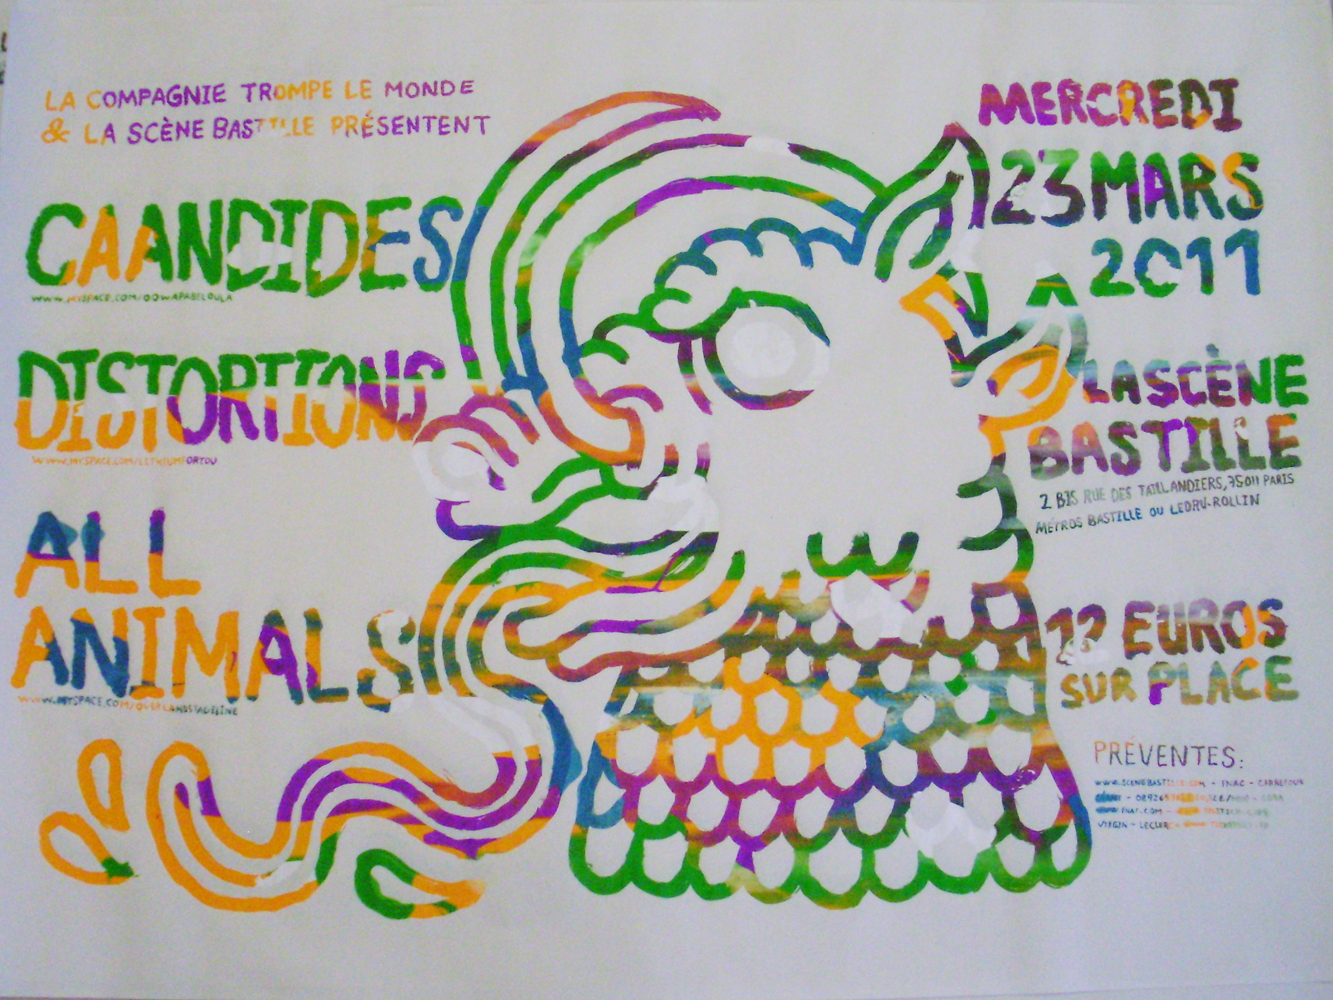 LA COMPAGNIE TROMPE LE MONDE
& LA SCÈNE BASTILLE PRÉSENTENT
CAANDIDES
WWW.MYSPACE.COM/OOWAPABELOULA
DISTORTIONS
WWW.MYSPACE.COM/LITHIUMFORYOU
ALL
ANIMALS
MERCREDI
23 MARS
2011
LA SCÈNE
BASTILLE
2 BIS RUE DES TAILLANDIERS, 75011 PARIS
MÉTROS BASTILLE OU LEDRU-ROLLIN
12 EUROS
SUR PLACE
PRÉVENTES:
WWW.SCENEBASTILLE.COM - FNAC - CARREFOUR
FNAC.COM
VIRGIN - LECLERC